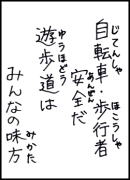 自転車・歩行者
安全だ
遊歩道は
みんなの味方
じてんしゃ
ほこうしゃ
あんぜん
ゆうほどう
みかた